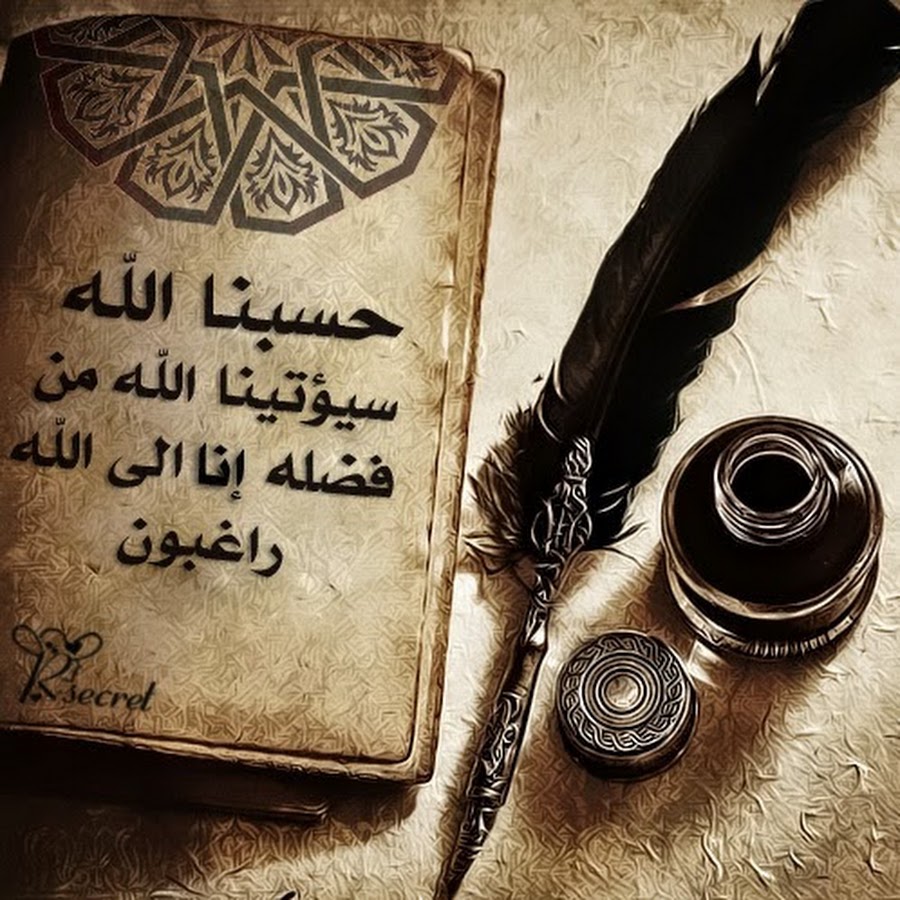 حسبنا اللّه
سيؤتينا اللّه من
فضله إنا الى اللّه
راغبون
R secret